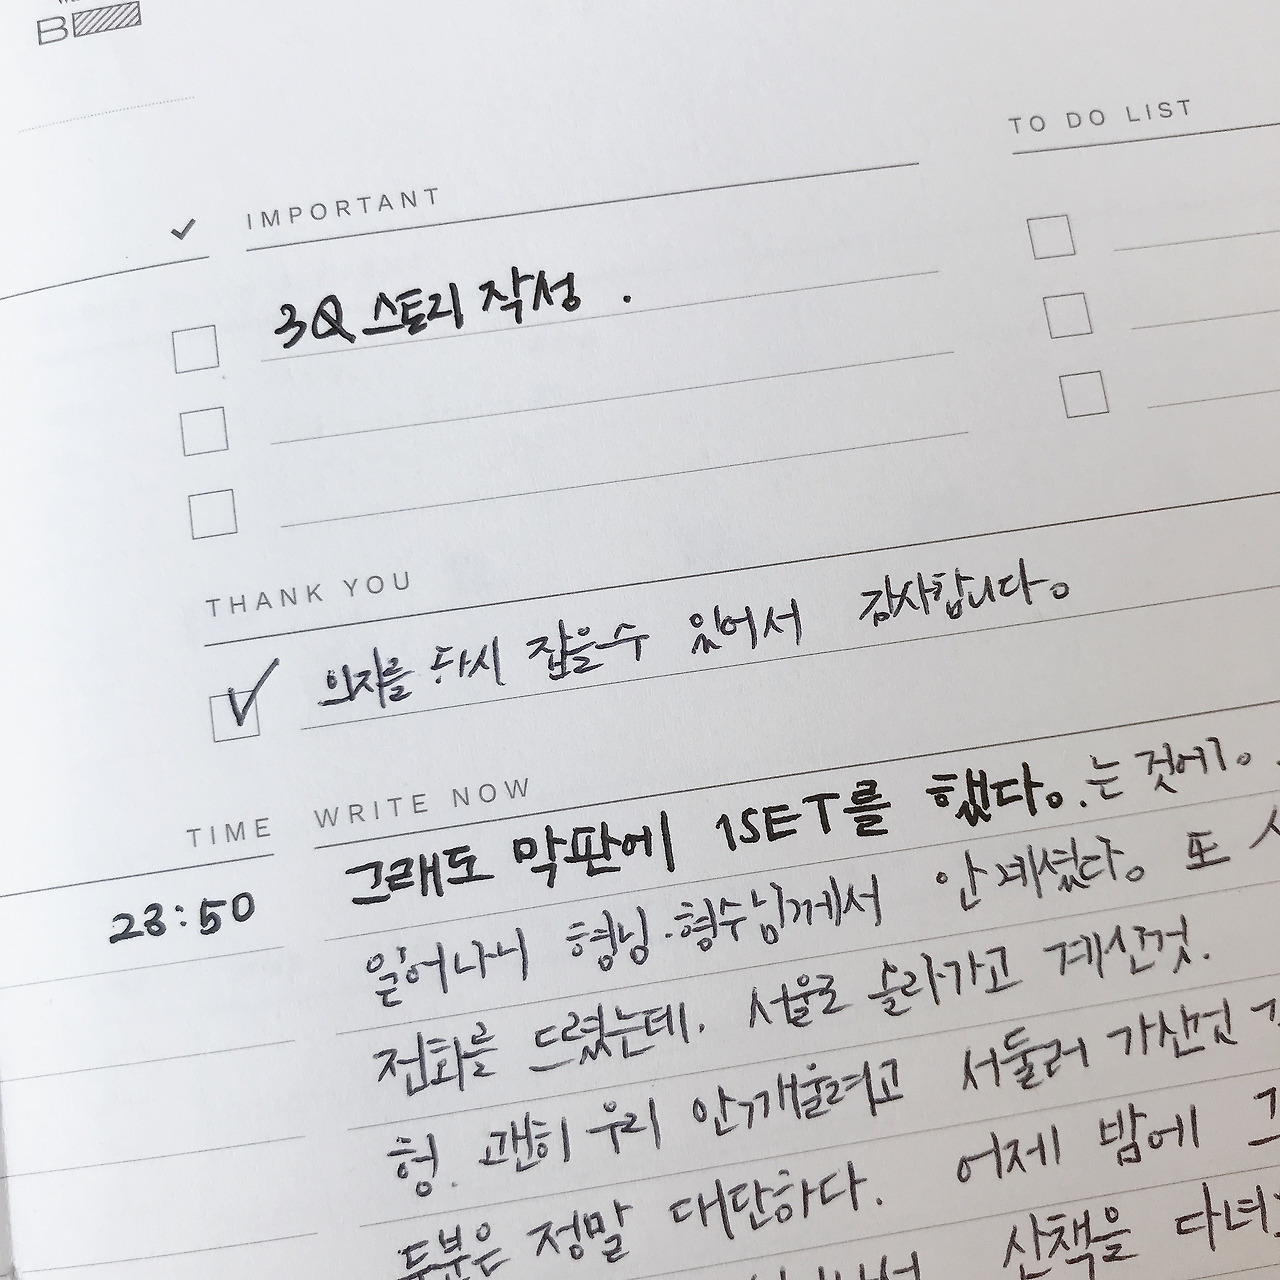 B
TO DO LIST
IMPORTANT
3Q 스토리 작성 .
THANK YOU
의지를 다시 잡을 수 있어서 감사합니다。
TIME WRITE NOW
23:50 그래도 막판에 1SET를 했다。. 는 것에。
일어나니 형님·형수님께서 안계셨다。 또
전화를 드렸는데. 서울로 올라가고 계신것.
헝. 괜히 우리 안깨울려고 서둘러 가신건
두분은 정말 대단하다. 어제 밤에 그
산책을 다녀